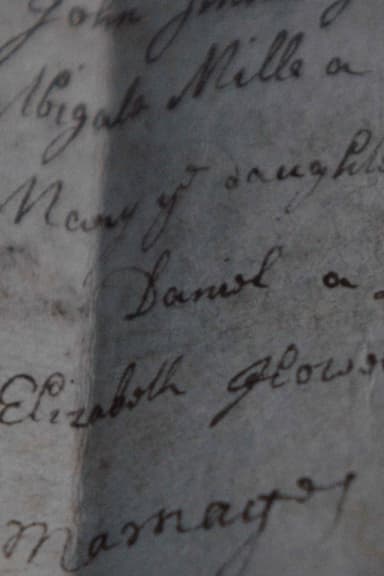 John
Abigale Mille a
Nany yᵉ daught
Daniel a
Elizabeth Glowe
Marriages